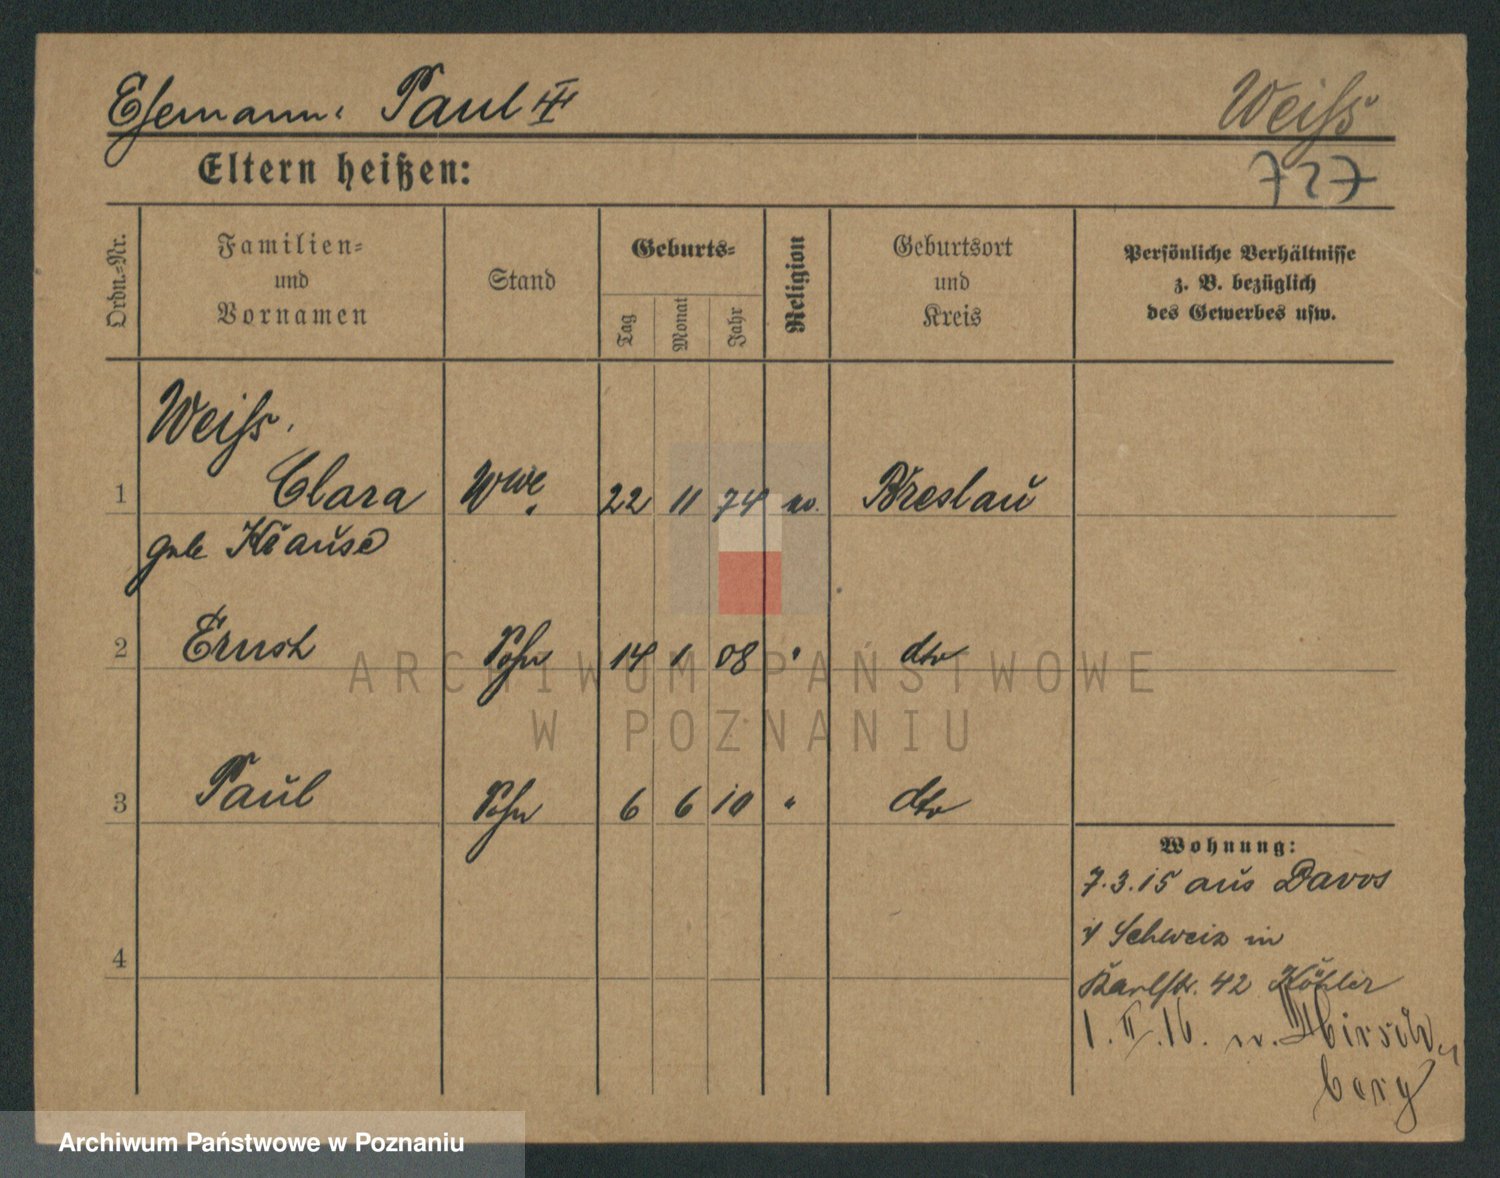 Ehemann: Paul Weiss
727
Eltern heißen:
Ordn.-Nr.
Familien- und Vornamen
Stand
Geburts-
Tag
Monat
Jahr
Religion
Geburtsort und Kreis
Persönliche Verhältnisse
z. B. bezüglich
des Gewerbes usw.
Weiss,
1 Clara Wwe. 22 11 74 Breslau
geb. Krause
2 Ernst Sohn 14 1 08 " dto
3 Paul Sohn 6 6 10 " dto
4
Wohnung:
7.3.15 aus Davos
i/ Schweiz in
Karlstr. 42 Köhler
1. II. 16. n. Hirsch-
berg
ARCHIWUM PAŃSTWOWE
W POZNANIU
Archiwum Państwowe w Poznaniu